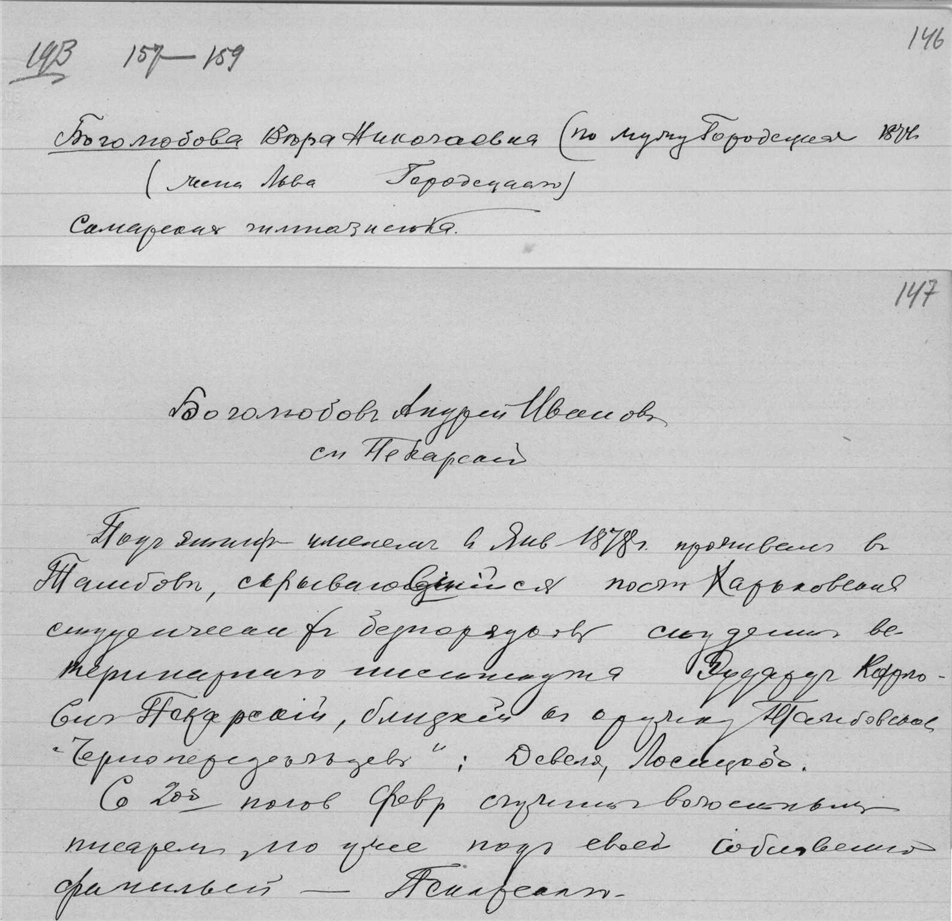 146
193 157—159
Боголюбова Вѣра Николаевна (по мужу Городецкая
(жена Льва Городецкаго)
Самарская гимназистка.
147
Боголюбовъ Андрей Ивановъ
см Пекарскій
Подъ этимъ именемъ въ Янв 1878 г. проживалъ въ
Тамбовѣ, скрывающійся послѣ Харьковскихъ
студенческихъ безпорядковъ студентъ ве-
теринарнаго института Эдуардъ Карло-
вичъ Пекарскій, близкій къ кружку Тамбовскихъ
"Чернопередѣльцевъ": Девеля, Лосицкаго.
Со 2ой полов Февр служилъ волостнымъ
писаремъ, но уже подъ своей собственной
фамильей — Пекарскаго.